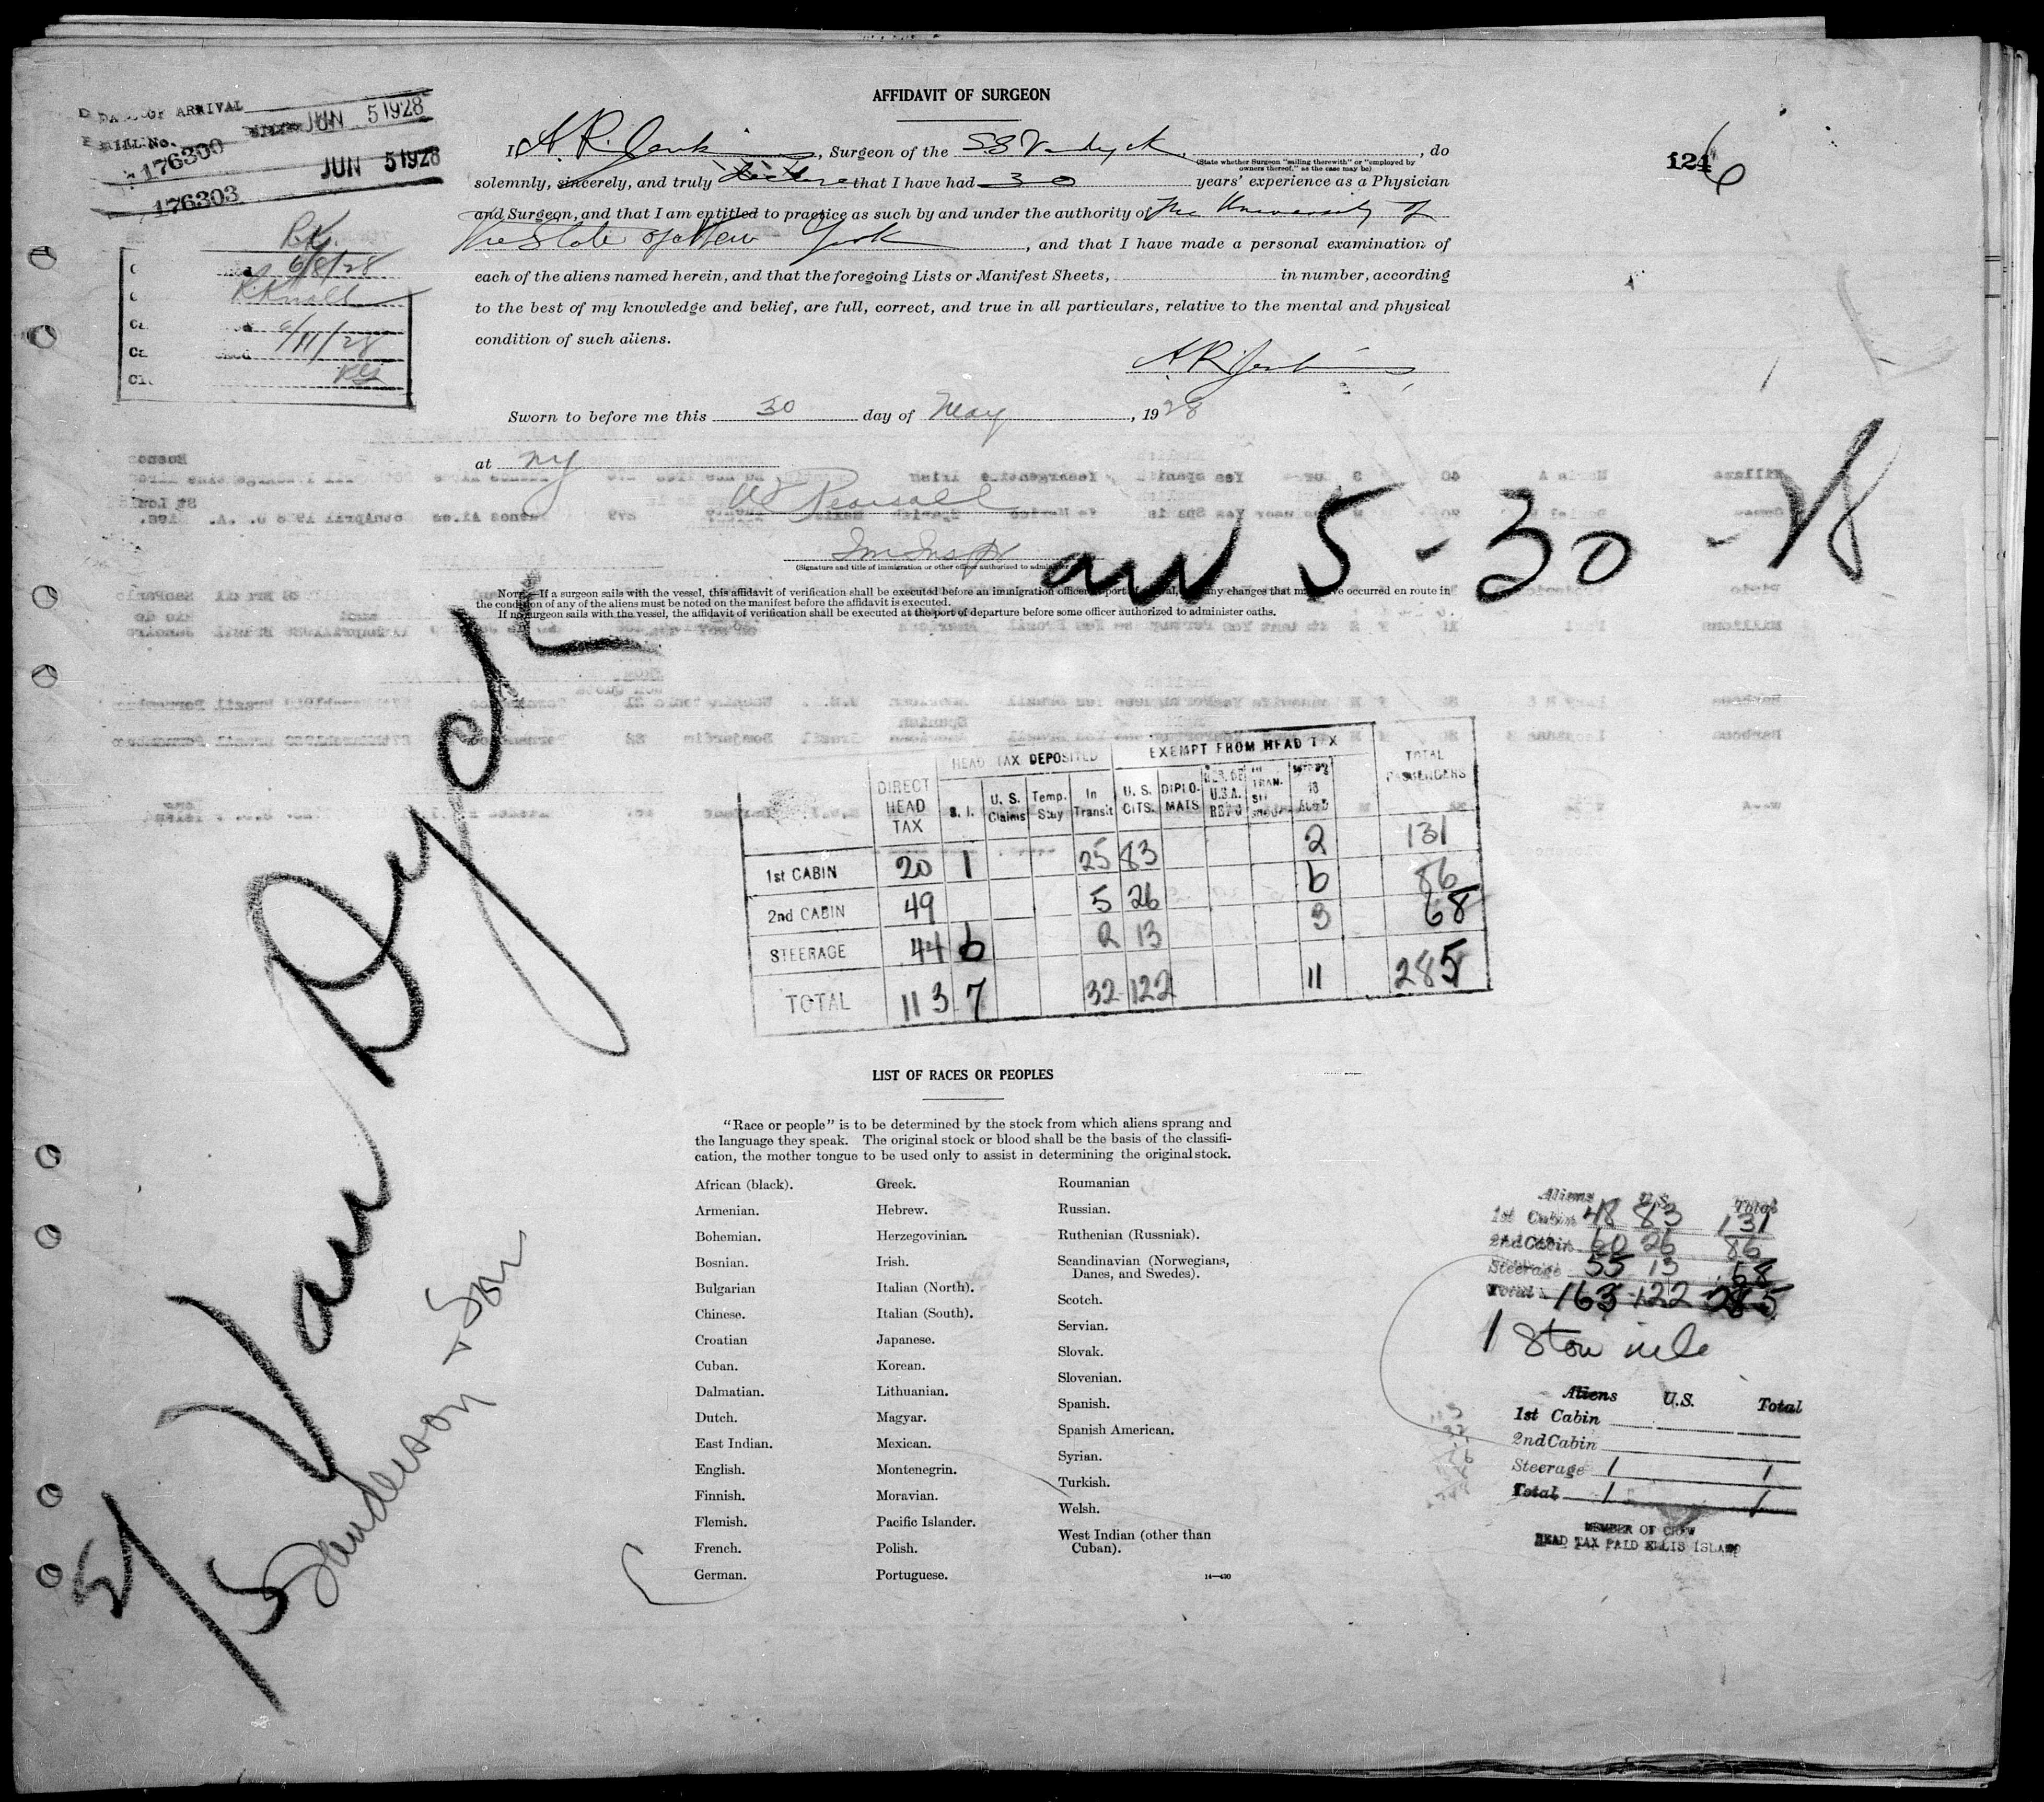 DATE OF ARRIVAL JUN 5 1928
SERIAL No. 176300 JUN 5 1928
176303
6/8/28
6/11/28
AFFIDAVIT OF SURGEON
I, A. R. Jenkins, Surgeon of the SS Vandyck, do
(State whether Surgeon "sailing therewith" or "employed by
owners thereof," as the case may be)
solemnly, sincerely, and truly declare that I have had 30 years' experience as a Physician
and Surgeon, and that I am entitled to practice as such by and under the authority of The University of
the State of New York, and that I have made a personal examination of
each of the aliens named herein, and that the foregoing Lists or Manifest Sheets, in number, according
to the best of my knowledge and belief, are full, correct, and true in all particulars, relative to the mental and physical
condition of such aliens.
A. R. Jenkins
Sworn to before me this 30 day of May, 1928
at NY
Pearsall
Im Inspr
(Signature and title of immigration or other officer authorized to administer
1246
arr 5-30-28
NOTE.—If a surgeon sails with the vessel, this affidavit of verification shall be executed before an immigration officer port of any changes that may have occurred en route in
the condition of any of the aliens must be noted on the manifest before the affidavit is executed.
If no surgeon sails with the vessel, the affidavit of verification shall be executed at the port of departure before some officer authorized to administer oaths.
HEAD TAX DEPOSITED EXEMPT FROM HEAD TAX
DIRECT HEAD TAX S. I. U. S. Claims Temp. Stay In Transit U. S. CITS. DIPLOMATS TOTAL PASSENGERS
1st CABIN 20 1 25 83 2 131
2nd CABIN 49 5 26 6 86
STEERAGE 44 6 2 13 3 68
TOTAL 113 7 32 122 11 285
Van Dyck
Sanderson & Son
LIST OF RACES OR PEOPLES
"Race or people" is to be determined by the stock from which aliens sprang and
the language they speak. The original stock or blood shall be the basis of the classifi-
cation, the mother tongue to be used only to assist in determining the original stock.
African (black).
Armenian.
Bohemian.
Bosnian.
Bulgarian
Chinese.
Croatian
Cuban.
Dalmatian.
Dutch.
East Indian.
English.
Finnish.
Flemish.
French.
German.
Greek.
Hebrew.
Herzegovinian.
Irish.
Italian (North).
Italian (South).
Japanese.
Korean.
Lithuanian.
Magyar.
Mexican.
Montenegrin.
Moravian.
Pacific Islander.
Polish.
Portuguese.
Roumanian
Russian.
Ruthenian (Russniak).
Scandinavian (Norwegians,
Danes, and Swedes).
Scotch.
Servian.
Slovak.
Slovenian.
Spanish.
Spanish American.
Syrian.
Turkish.
Welsh.
West Indian (other than
Cuban).
14—430
Aliens U.S. Total
1st Cabin 48 83 131
2nd Cabin 60 26 86
Steerage 55 13 68
Total 163 122 285
1
Aliens U.S. Total
1st Cabin
2nd Cabin
Steerage 1 1
Total 1 1
MEMBER OF CREW
HEAD TAX PAID ELLIS ISLAND